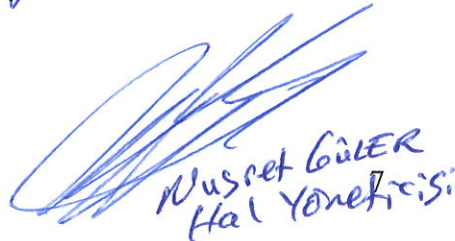 Nusret GÜLER
Hal Yöneticisi
7